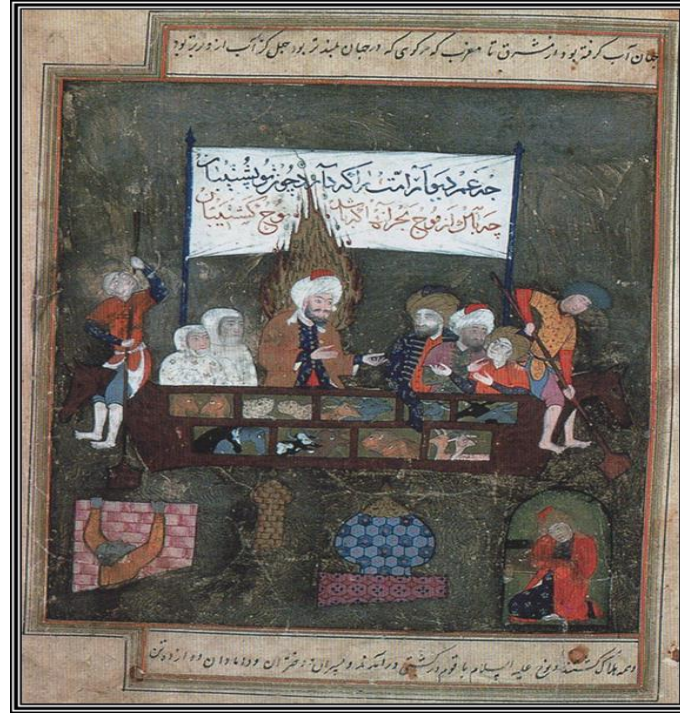 جهان آب کرفته بود از مشرق تا مغرب که هر کوهی که در جهان بلند تر بود چهل کز آب از بود
چه غم دیوار امت را که دارد چون تو پشتیبان
چه باک از موج بحر آنرا که باشد نوح کشتیبان
وهمه هلاک کشتند و نوح علیه السلام با قوم در کشتی درآمدند و پسران و دختران و دامادان